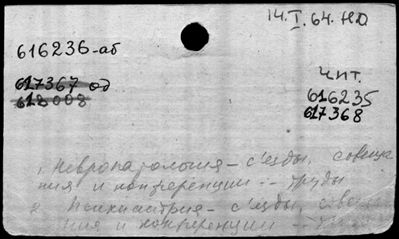 14.I.64. НО
616236-аб
617367 од
618008
Чит.
616235
617368
1. Невропатология - съезды, совеща
ния и конференции -- труды
2. Психиатрия - съезды, совеща
ния и конференции --